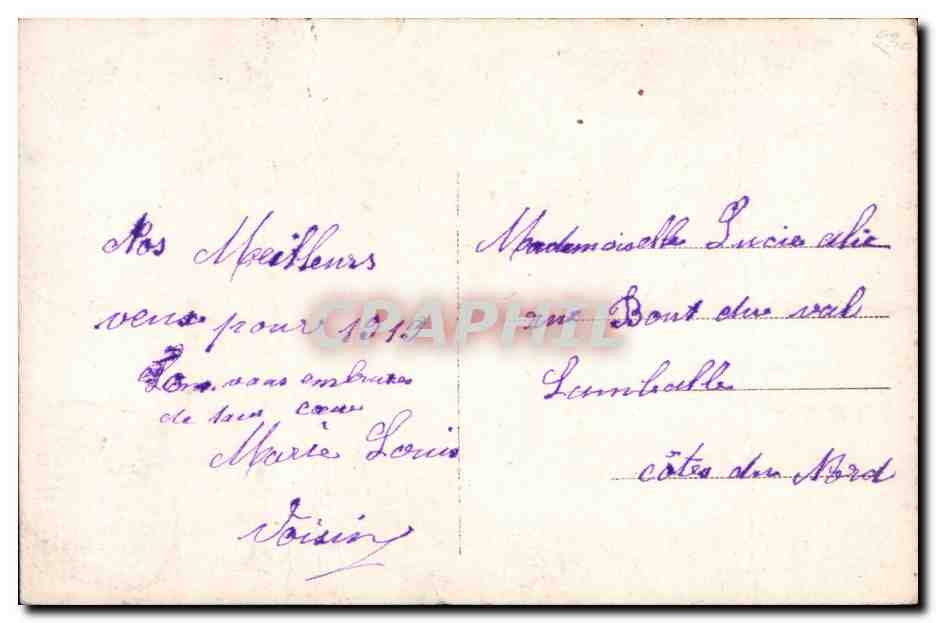 Nos Meilleurs
veux pour 1919
vous embrasses
de tous coeur
Marie Louis
Voisin
Mademoiselle Lucie alie
au Bout du val
Lamballe
côtes du Nord
CPAPHIL